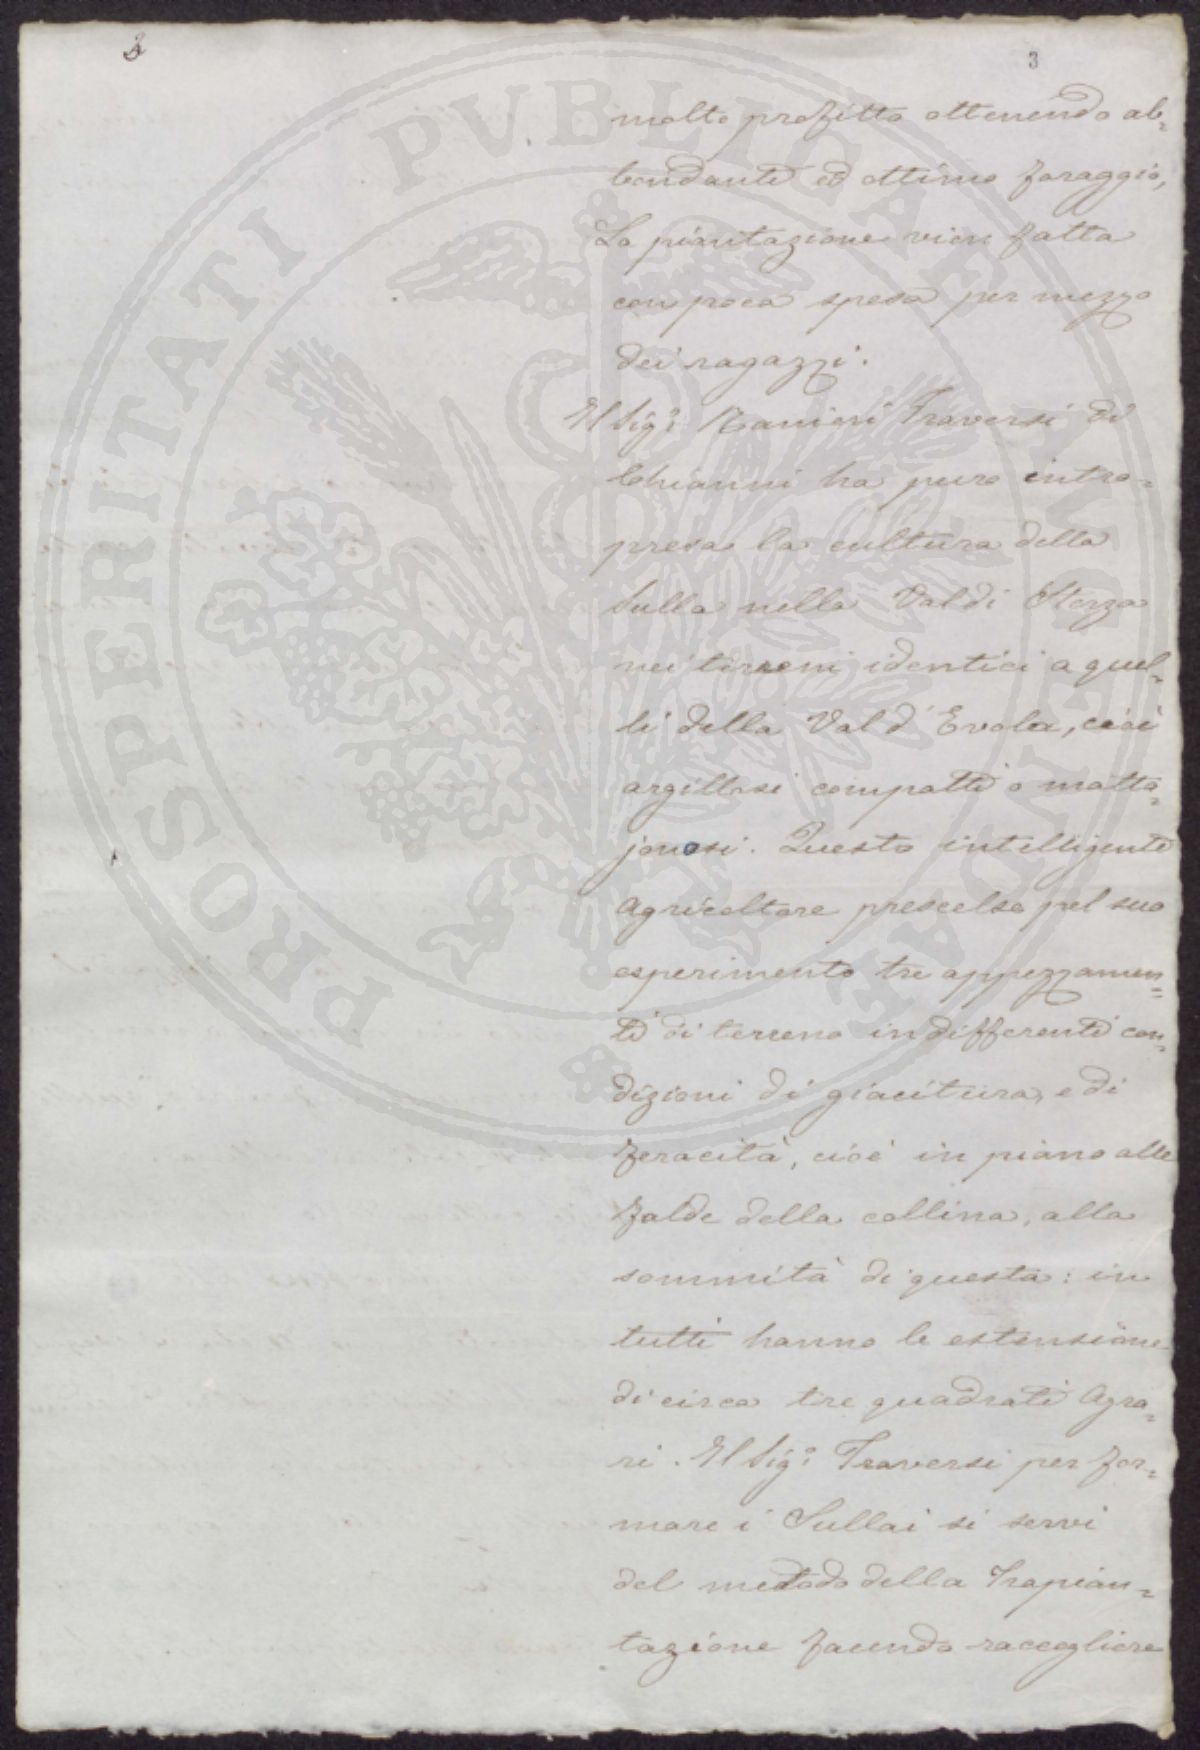 3
3
molto profitto ottenendo ab=
bondante ed ottimo foraggio,
La piantazione vien fatta
con poca spesa per mezzo
dei ragazzi.
Il Sig.r Ranieri Traversi di
Chianni ha pure intra=
presa la cultura della
Sulla nella Val di Sterza
nei terreni identici a quel=
li della Val d'Evola, cioè
argillosi compatti o matta=
jonosi. Questo intelligente
Agricoltore prescelse pel suo
esperimento tre appezzamen=
ti di terreno in differenti con=
dizioni di giacitura, e di
feracità, cioè in piano alle
falde della collina, alla
sommità di questa: in
tutti hanno le estensione
di circa tre quadrati Agra=
ri. Il Sig.r Traversi per for=
mare i Sullai si servi
del metodo della Trapian=
tazione facendo raccogliere
PROSPERITATI PVBLICAE AVGENDAE